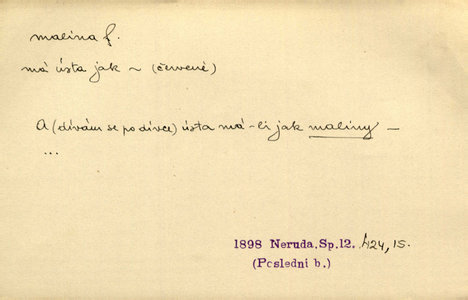 malina f.
má ústa jak ~ (červené)
A (dívám se po dívce) ústa má-li jak maliny —
...
1898 Neruda, Sp.12. 424, 15.
(Poslední b.)